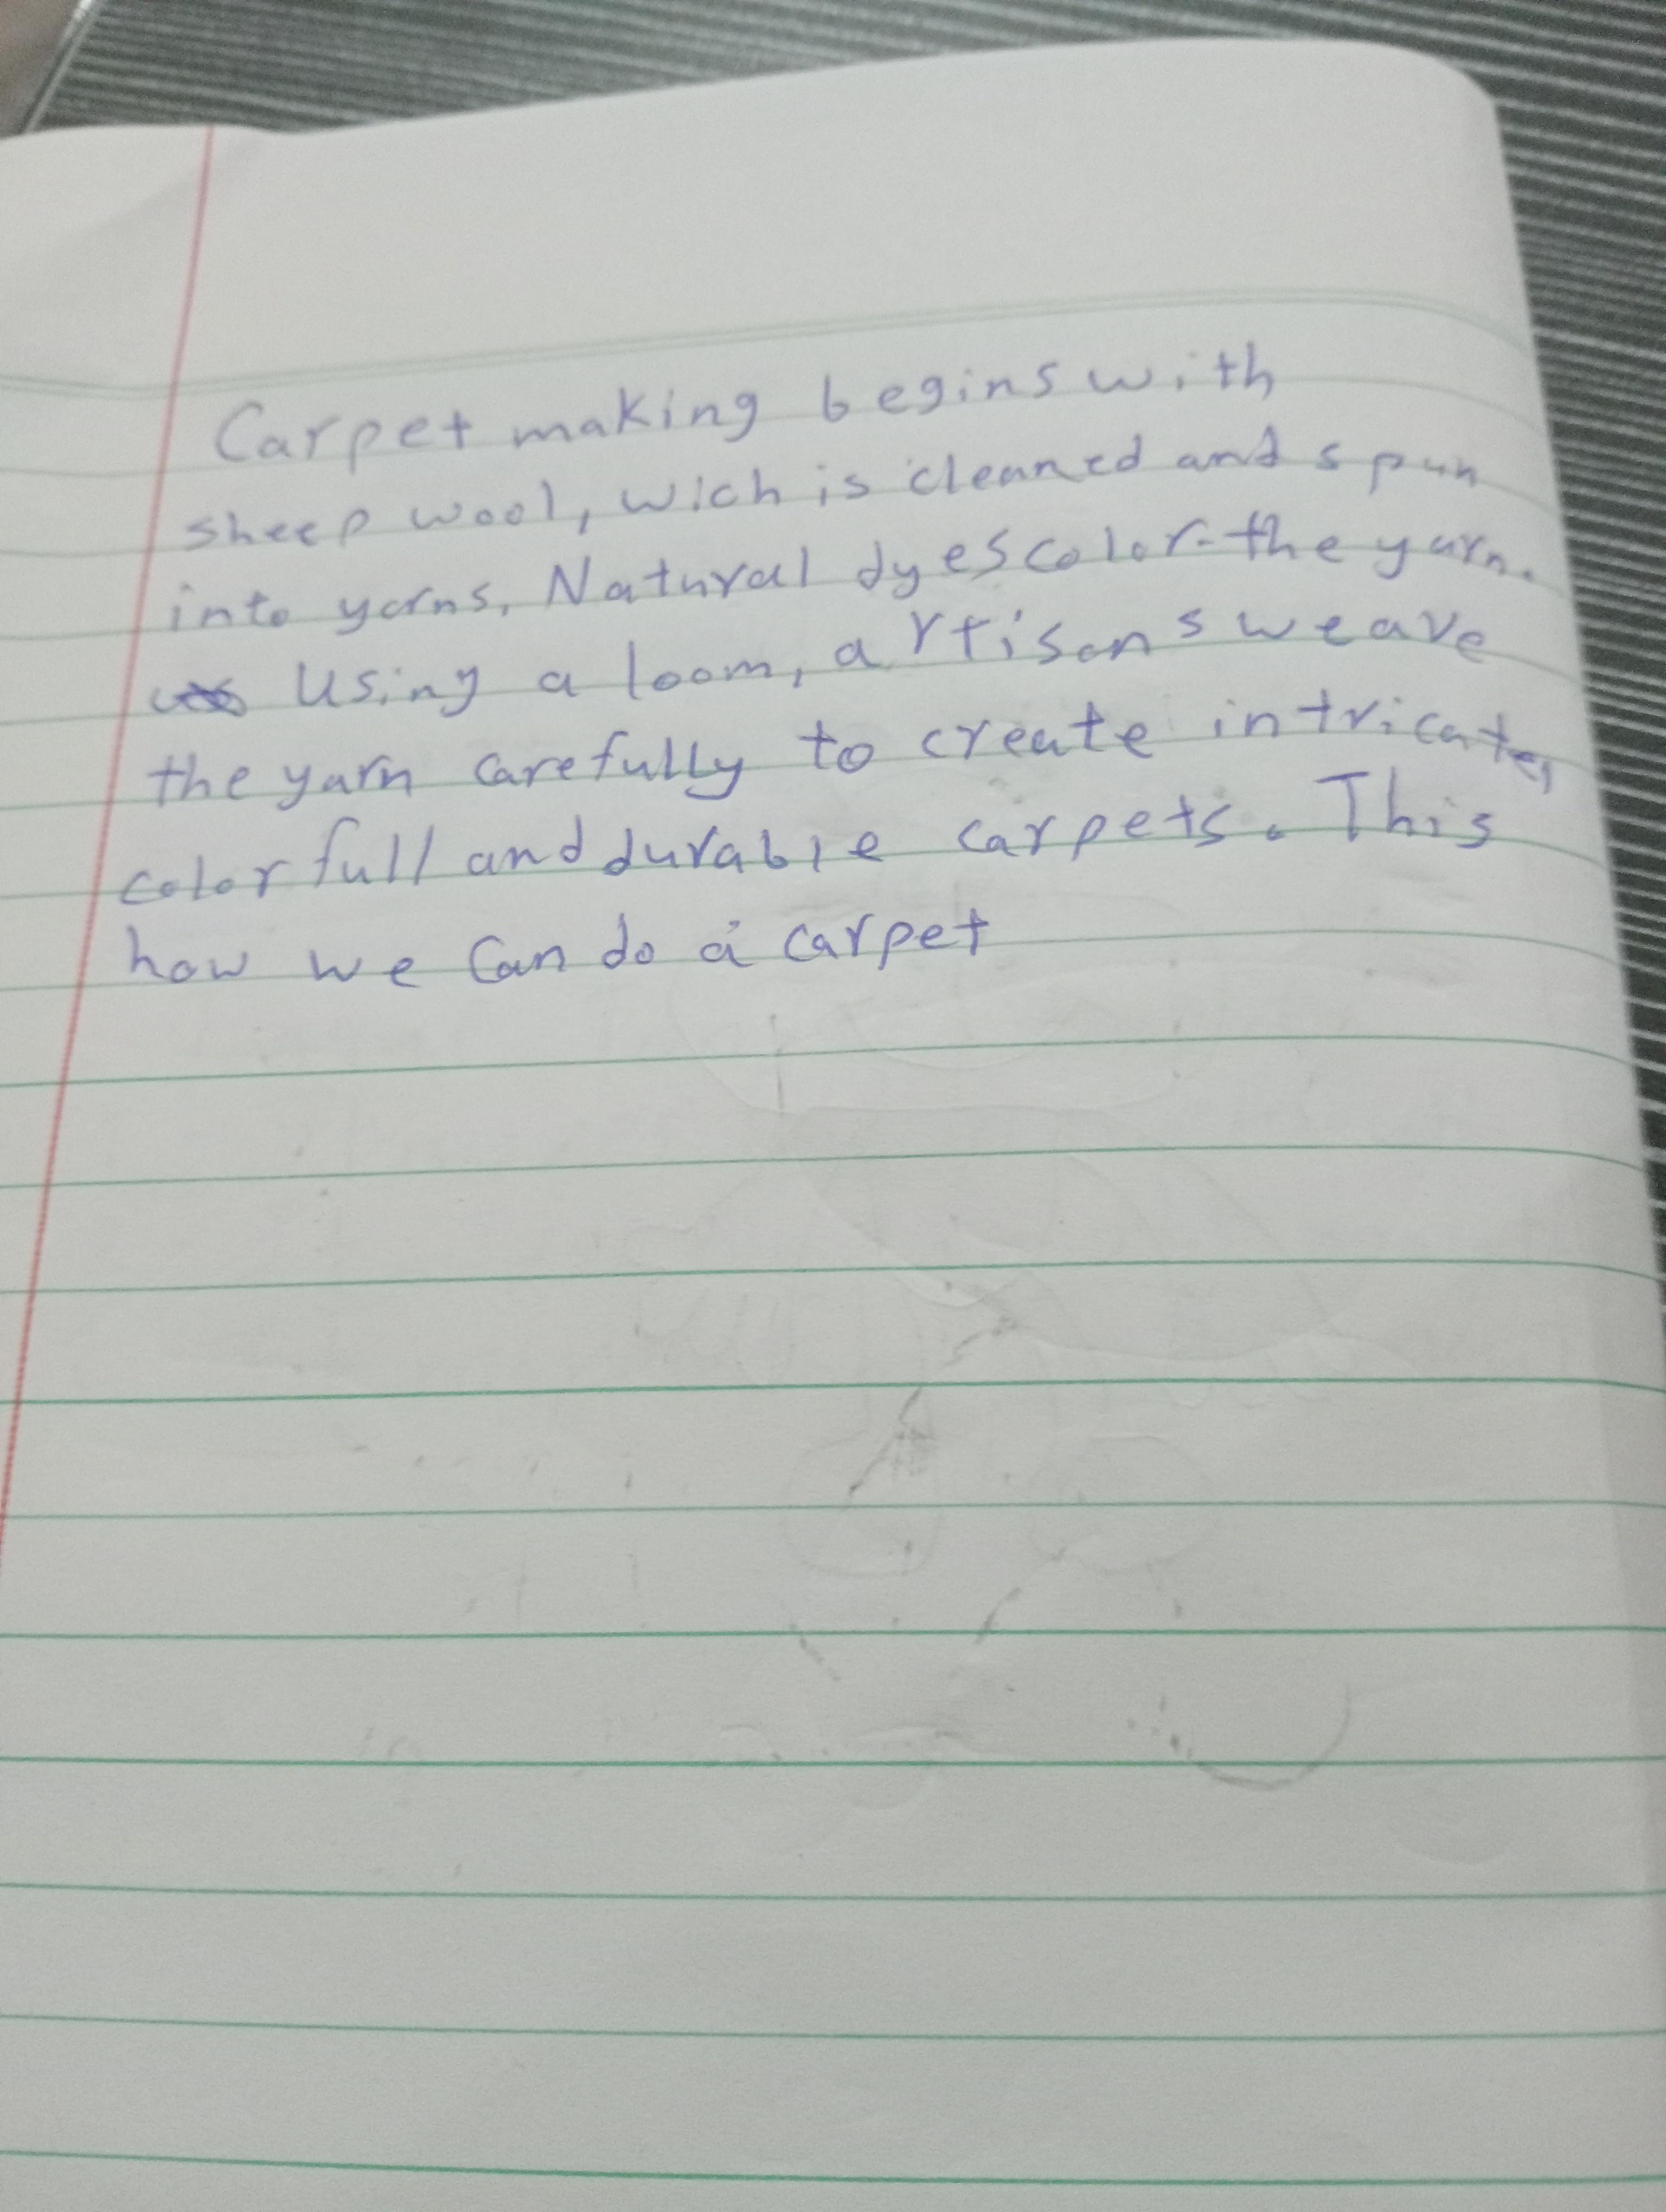 Carpet making begins with
sheep wool, wich is cleaned and spun
into yarns. Natural dyes color the yarn.
Using a loom, artisans weave
the yarn carefully to create intricate,
colorfull and durable carpets. This
how we can do a carpet